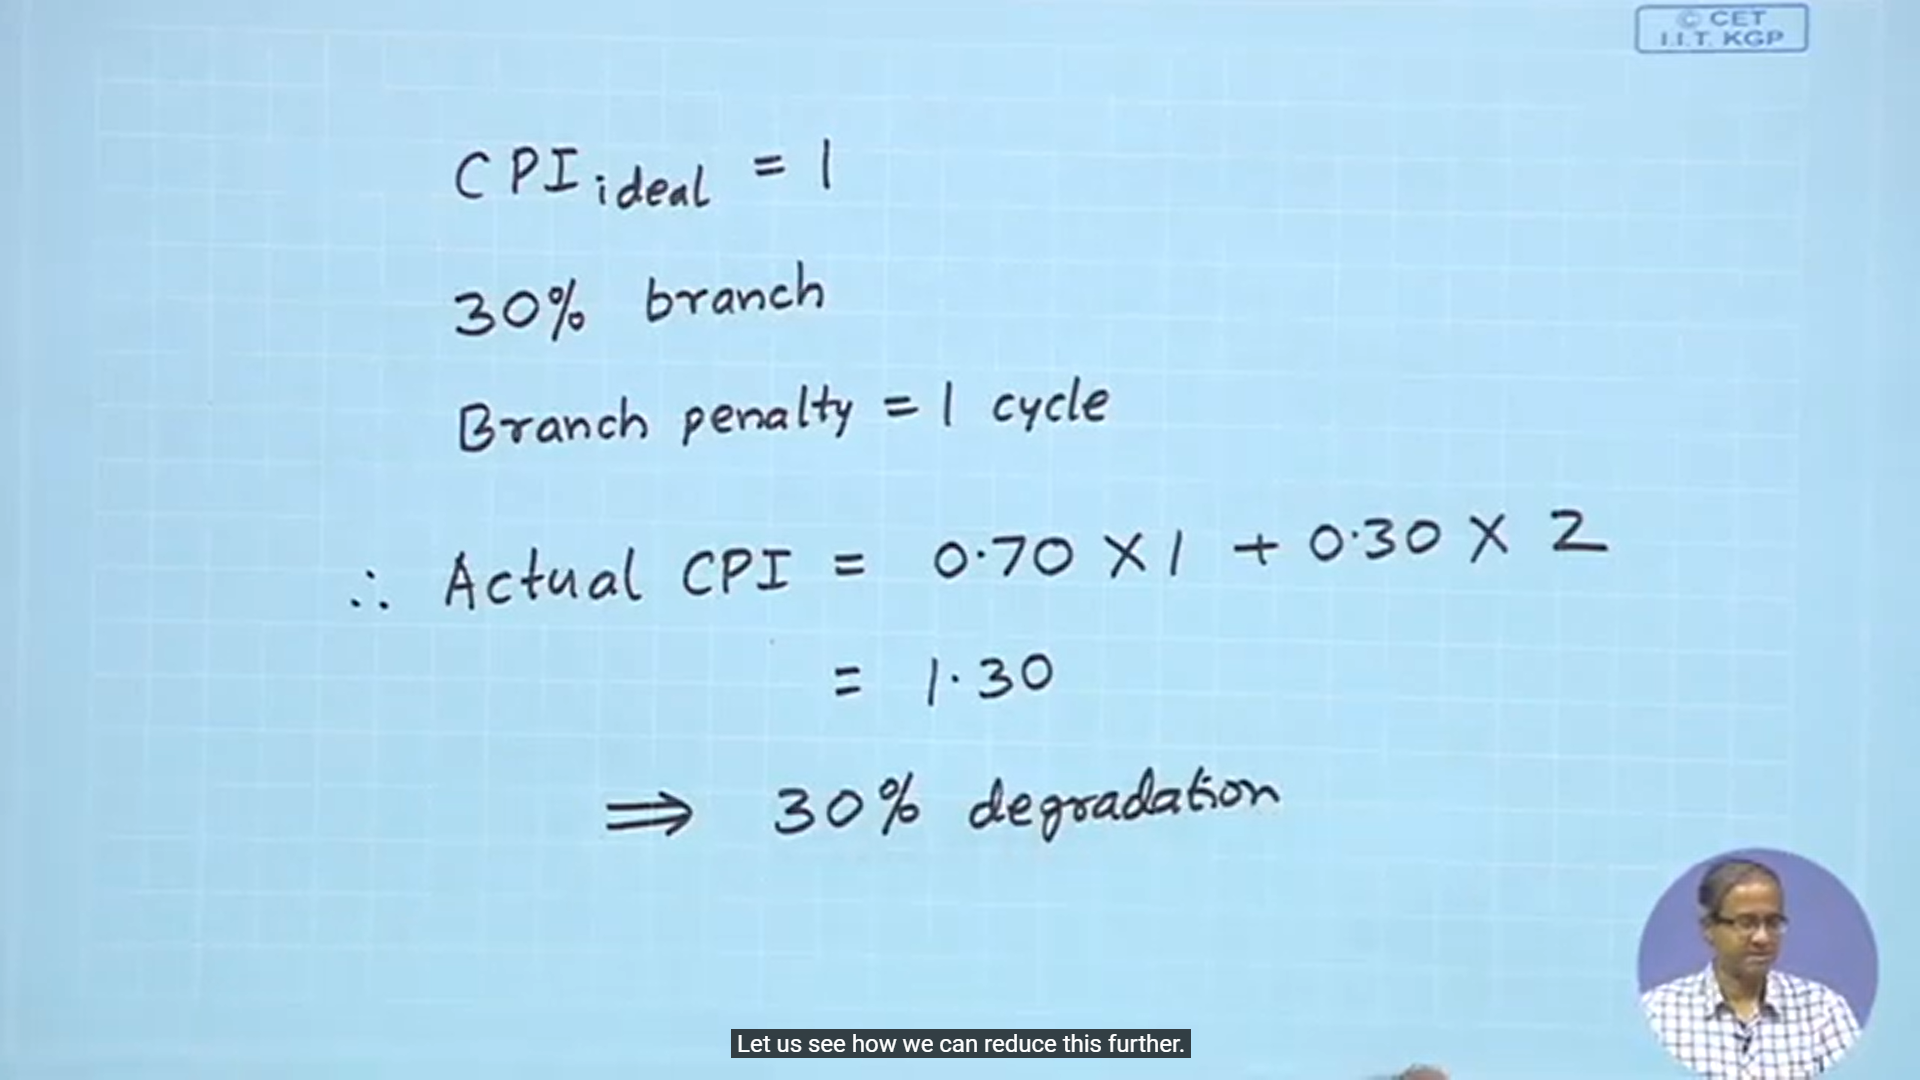 © CET
I.I.T. KGP
CPI ideal = 1
30% branch
Branch penalty = 1 cycle
∴ Actual CPI = 0.70 X 1 + 0.30 X 2
= 1.30
⇒ 30% degradation
Let us see how we can reduce this further.